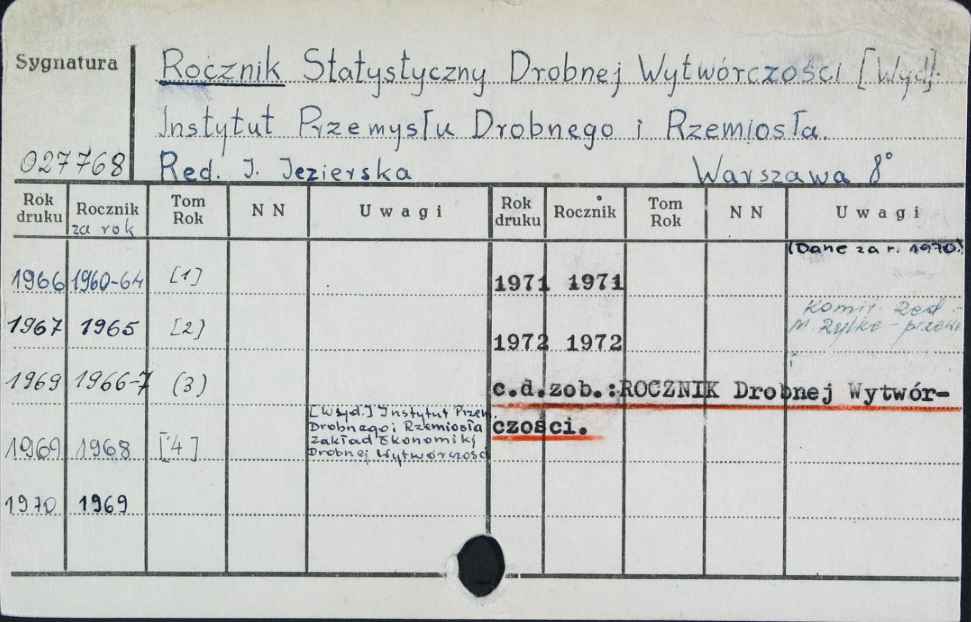 Sygnatura
Rocznik Statystyczny Drobnej Wytwórczości [Wyd].
Instytut Przemysłu Drobnego i Rzemiosła.
027768
Red. J. Jezierska Warszawa 8°
Rok druku Rocznik za rok Tom Rok N N Uwagi Rok druku Rocznik Tom Rok N N Uwagi
(Dane za r. 1970)
1966 1960-64 [1] 1971 1971
1967 1965 [2] 1972 1972 Komit. Red.
M. Zylko - przew
1969 1966-7 (3) c.d.zob.:ROCZNIK Drobnej Wytwór-
czości.
1969 1968 [4] [Wyd.] Instytut Przem.
Drobnego i Rzemiosła
Zakład Ekonomiki
Drobnej Wytwórczości
1970 1969